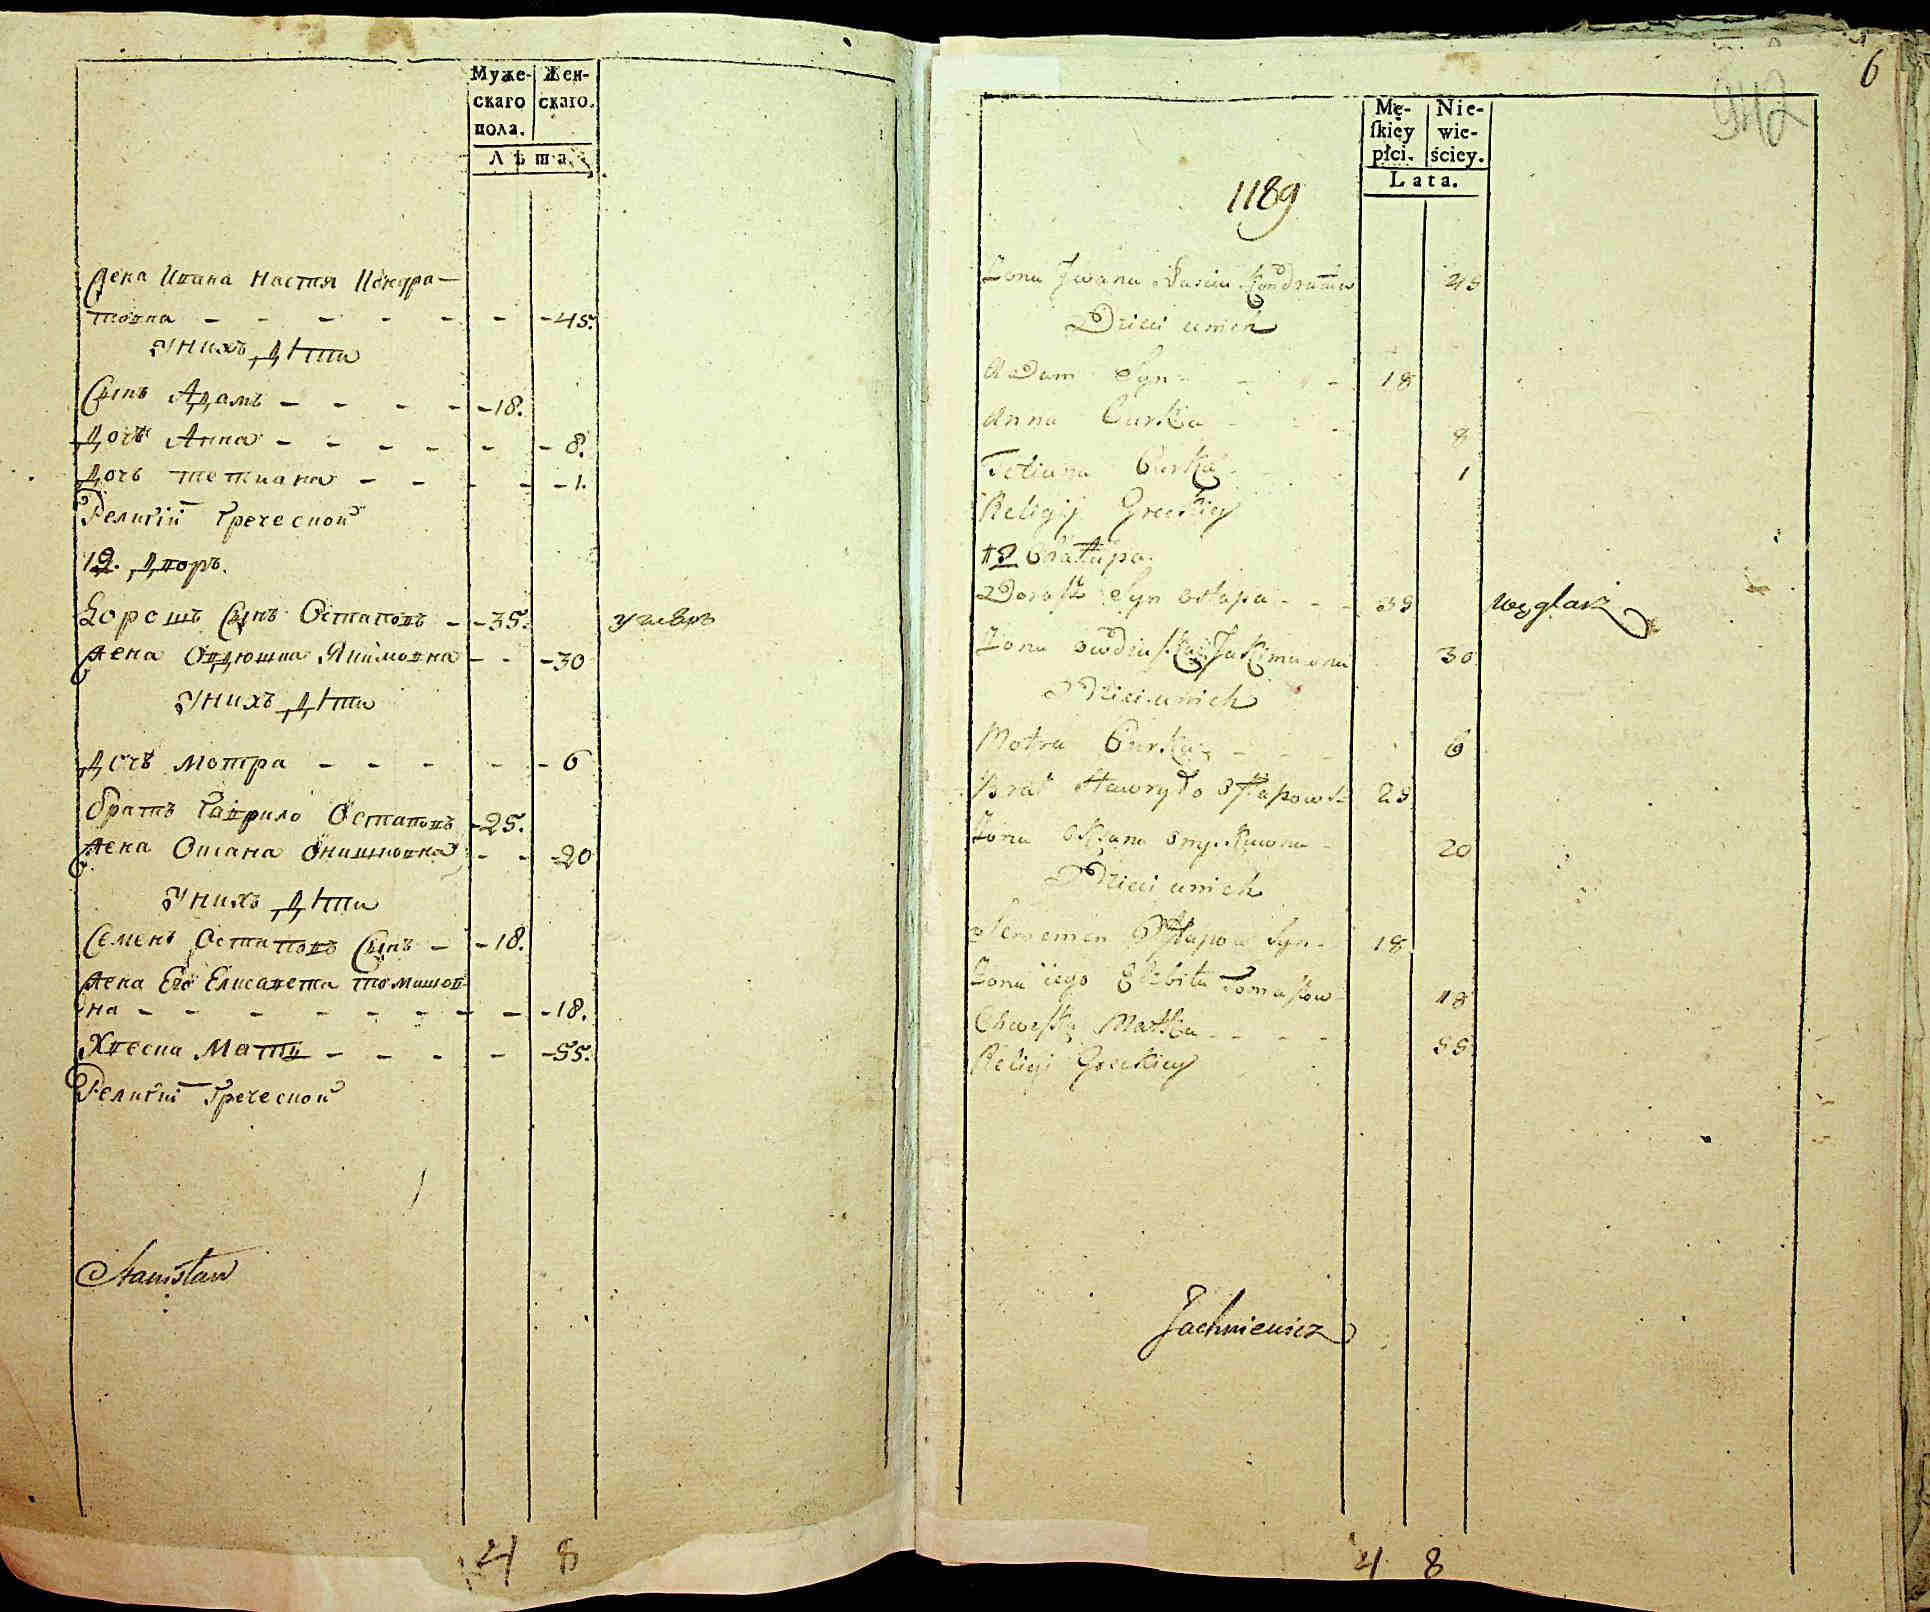 Муже-
скаго
пола.
Жен-
скаго.
Лѣта.
Жена Ивана Настя Кондра-
товна - 45.
У нихъ дѣти
Сынъ Адамъ - 18.
Дочь Анна - 8.
Дочь Тетиана - 1.
Релиґіи Греческой
12. Дворъ.
Дорошъ Сынъ Остаповъ - 35.
Жена Овдюшка Якимовна - 30
У нихъ дѣти
Дочь Мотра - 6
Братъ Гаврило Остаповъ - 25.
Жена Оксана Онишковна - 20
У нихъ дѣти
Семенъ Остаповъ Сынъ - 18.
Жена Его Елисавета Томашов-
на - 18.
Хвеска Мать - 55.
Релиґіи Греческой
Stanisław
4 8
6
942
Mę-
ſkiey
płci.
Nie-
wie-
ściey.
Lata.
1189
Żona Jwana Nascia Kondratowa 45
Dzieci u nich
Adam Syn - 18
Anna Curka - 8
Tetiana Curka - 1
Religij Greckiey
12 Chałupa.
Dorosz Syn Ostapa - 35 węglarz
Żona Owdiuszka Jakimowna 30
Dzieci u nich
Motra Curka - 6
Brat Hawryło Ostapow 25
Żona Oxana 20
Dzieci u nich
Semen Ostapow Syn - 18
Żona iego Elzbita Tomaszow- 18
Chweska Matka - 55
Religi Greckiey
Jachniewicz
4 8